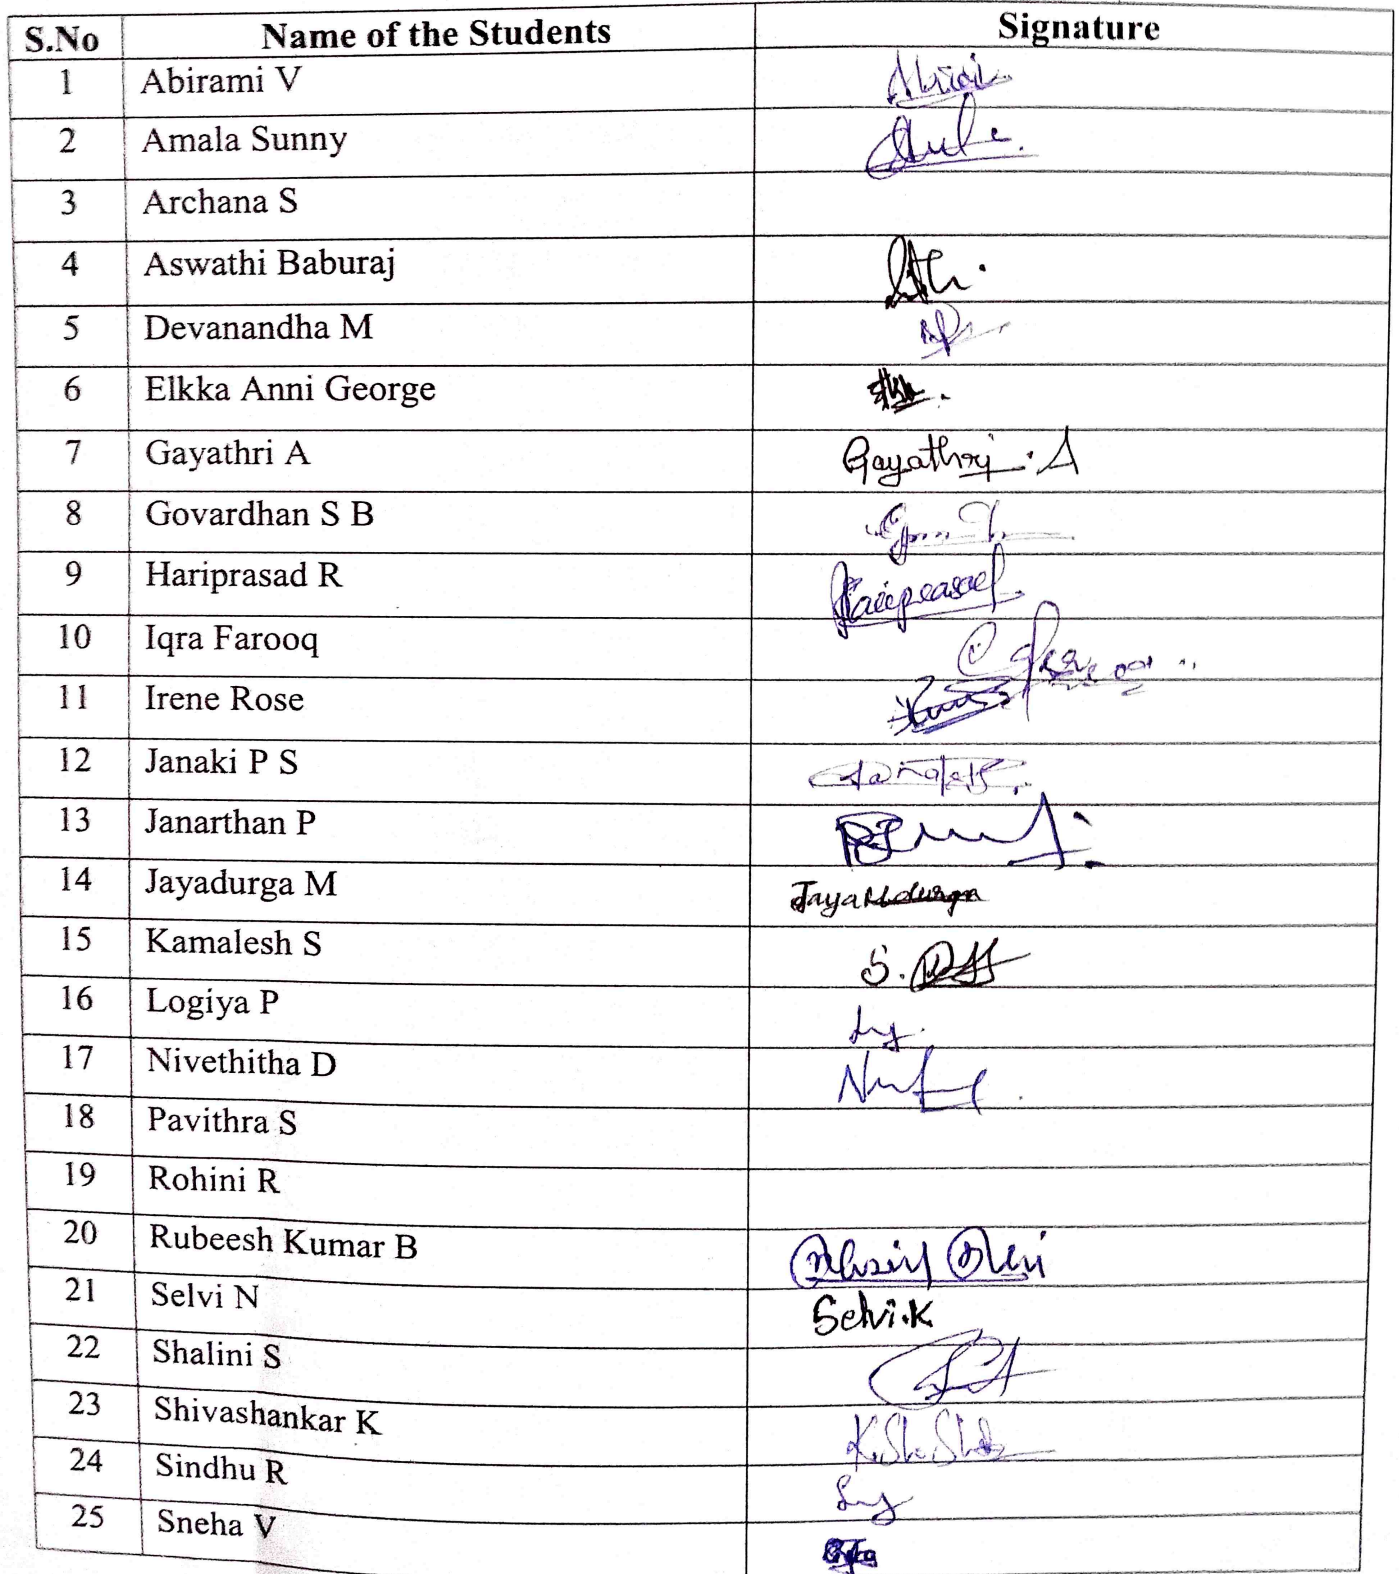 S.No Name of the Students Signature
1 Abirami V
2 Amala Sunny
3 Archana S
4 Aswathi Baburaj
5 Devanandha M
6 Elkka Anni George
7 Gayathri A Gayathri . A
8 Govardhan S B
9 Hariprasad R Hariprasad
10 Iqra Farooq
11 Irene Rose
12 Janaki P S
13 Janarthan P
14 Jayadurga M
15 Kamalesh S
16 Logiya P
17 Nivethitha D
18 Pavithra S
19 Rohini R
20 Rubeesh Kumar B
21 Selvi N Selvi.K
22 Shalini S
23 Shivashankar K
24 Sindhu R
25 Sneha V